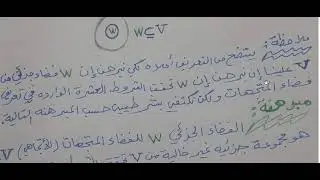 W W⊆V
ملاحظة: يتضح من التعريف أعلاه لكي نبرهن إن W فضاء جزئي من
V علينا إن نبرهن إن W تحقق الشروط العشرة الواردة في تعريف
فضاء المتجهات ولكن نكتفي بشرطين حسب المبرهنة التالية.
مبرهنة: الفضاء الجزئي W للفضاء المتجهات (الأتجاهي) V
هو مجموعة جزئية غير خالية من V